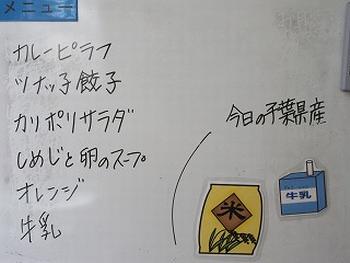 メニュー
カレーピラフ
ツナッ子餃子
カリポリサラダ
しめじと卵のスープ
オレンジ
牛乳
今日の千葉県産
米
牛乳